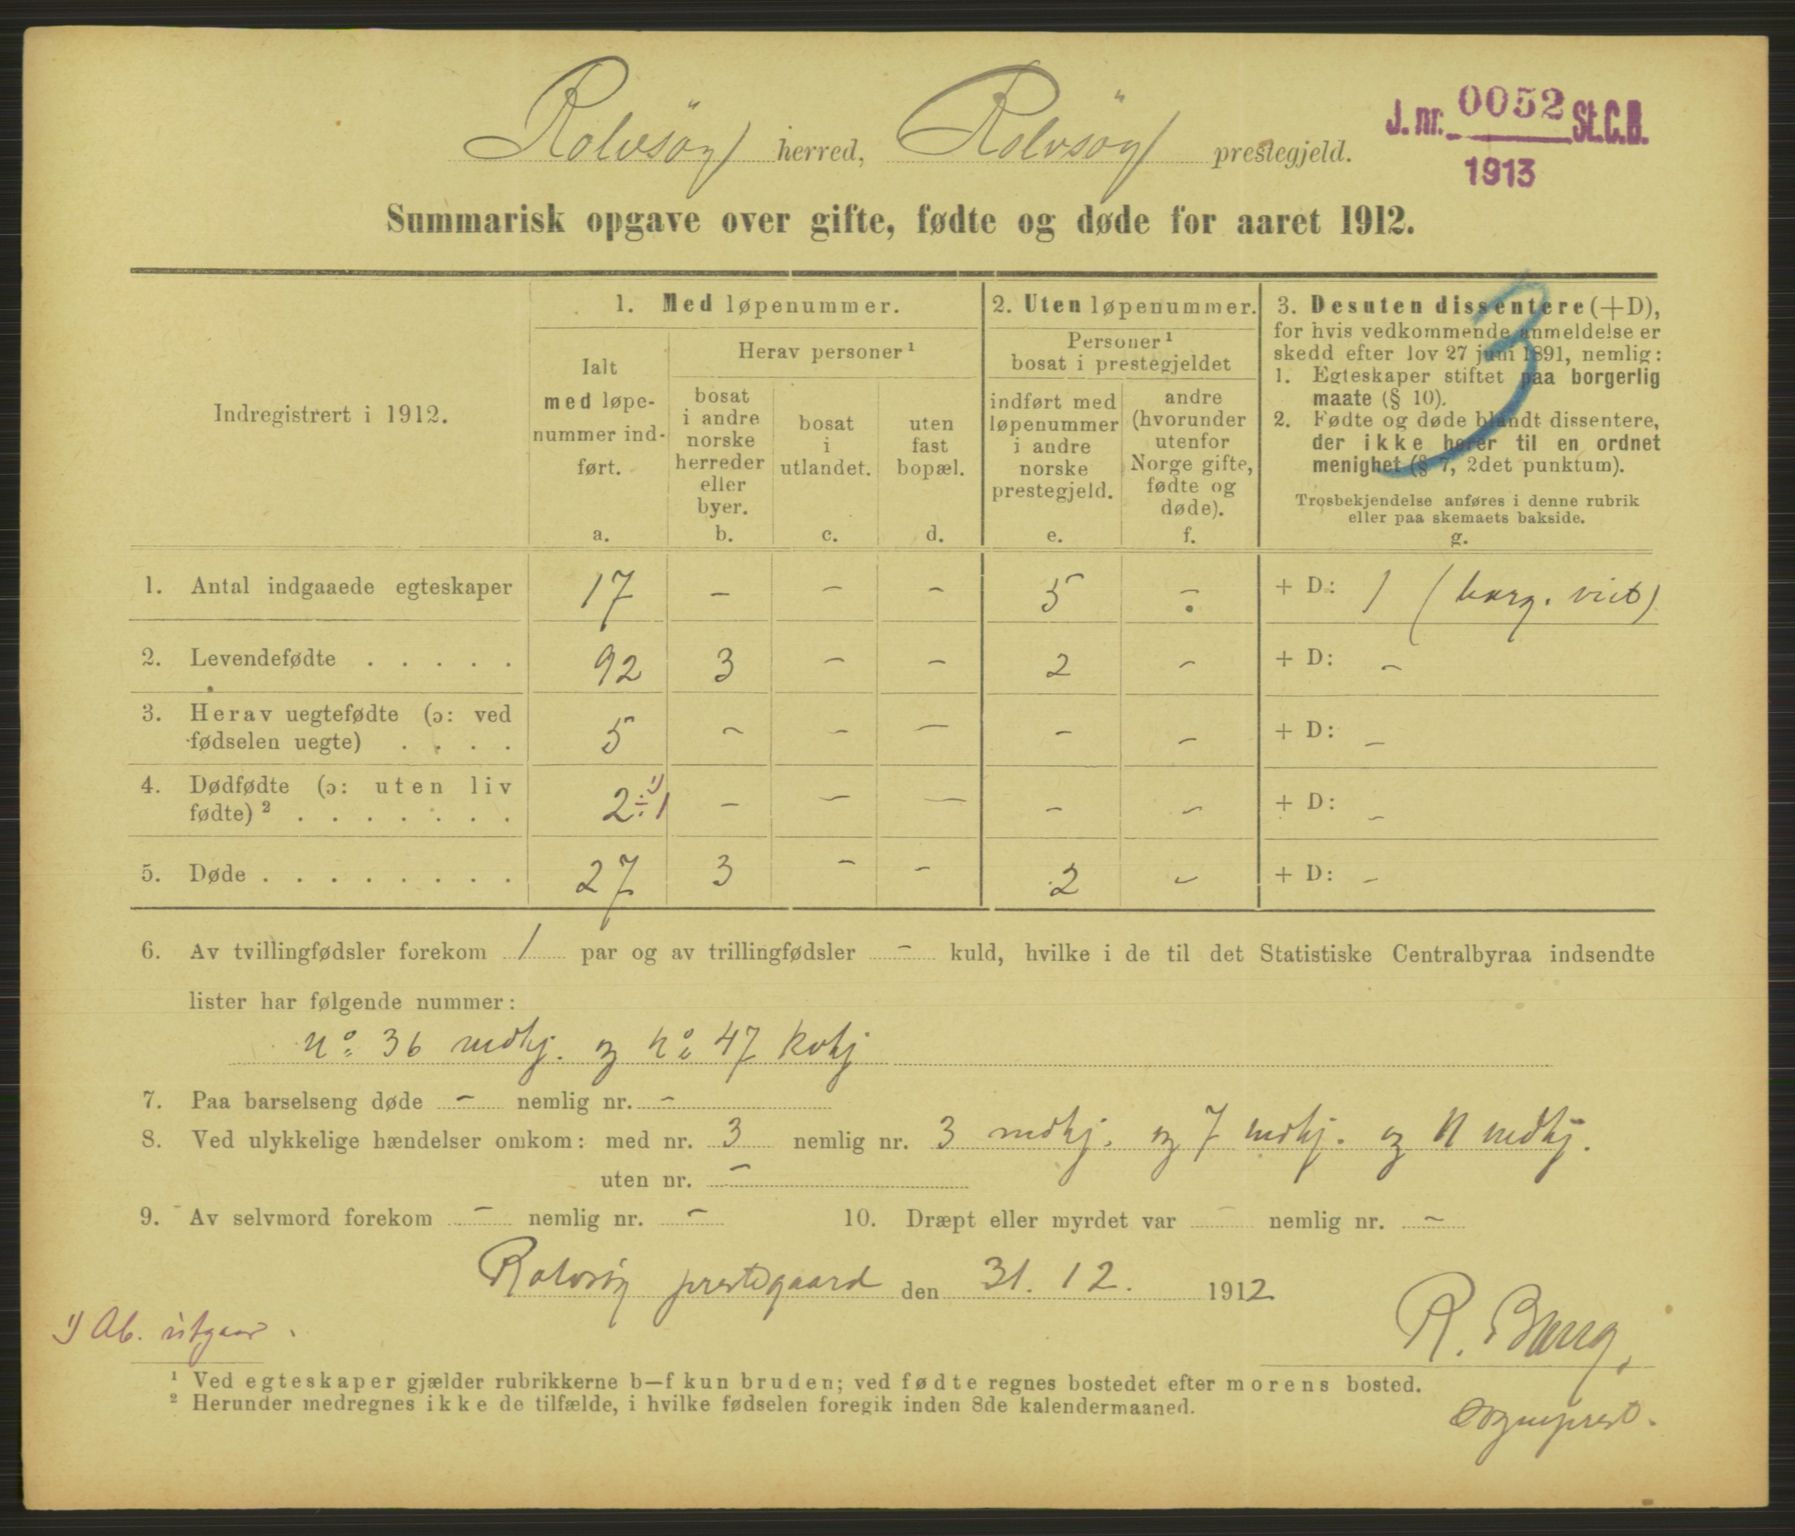 Rolvsöy herred, Rolvsöy prestegjeld.
J. nr. 0052 St.C.B.
1913
Summarisk opgave over gifte, fødte og døde for aaret 1912.
Indregistrert i 1912.
1. Med løpenummer.
Ialt
med løpe-
nummer ind-
ført.
a.
Herav personer ¹
bosat
i andre
norske
herreder
eller
byer.
b.
bosat
i
utlandet.
c.
uten
fast
bopæl.
d.
2. Uten løpenummer.
Personer ¹
bosat i prestegjeldet
indført med
løpenummer
i andre
norske
prestegjeld.
e.
andre
(hvorunder
utenfor
Norge gifte,
fødte og
døde).
f.
3. Desuten dissentere (+D),
for hvis vedkommende anmeldelse er
skedd efter lov 27 juni 1891, nemlig:
1. Egteskaper stiftet paa borgerlig
maate (§ 10).
2. Fødte og døde blandt dissentere,
der ikke hører til en ordnet
menighet (§ 7, 2det punktum).
Trosbekjendelse anføres i denne rubrik
eller paa skemaets bakside.
g.
3
1. Antal indgaaede egteskaper 17 – – – 5 – + D: 1 (borg. viet)
2. Levendefødte . . . . . 92 3 – – 2 – + D: –
3. Herav uegtefødte (ɔ: ved
fødselen uegte) . . . . 5 – – – – – + D: –
4. Dødfødte (ɔ: uten liv
fødte) ² . . . . . . . 2 ÷ 1 ¹) – – – – – + D: –
5. Døde . . . . . . . . 27 3 – – 2 – + D: –
6. Av tvillingfødsler forekom 1 par og av trillingfødsler – kuld, hvilke i de til det Statistiske Centralbyraa indsendte
lister har følgende nummer:
No 36 mdkj. og No 47 kvkj
7. Paa barselseng døde – nemlig nr. –
8. Ved ulykkelige hændelser omkom: med nr. 3 nemlig nr. 3 mdkj. og 7 mdkj. og 11 mdkj.
uten nr. –
9. Av selvmord forekom – nemlig nr. – 10. Dræpt eller myrdet var – nemlig nr. –
Rolvsöy prestegaard den 31. 12. 1912
¹) Ab. utgaar.
R. Bang,
sogneprest.
¹ Ved egteskaper gjælder rubrikkerne b—f kun bruden; ved fødte regnes bostedet efter morens bosted.
² Herunder medregnes ikke de tilfælde, i hvilke fødselen foregik inden 8de kalendermaaned.